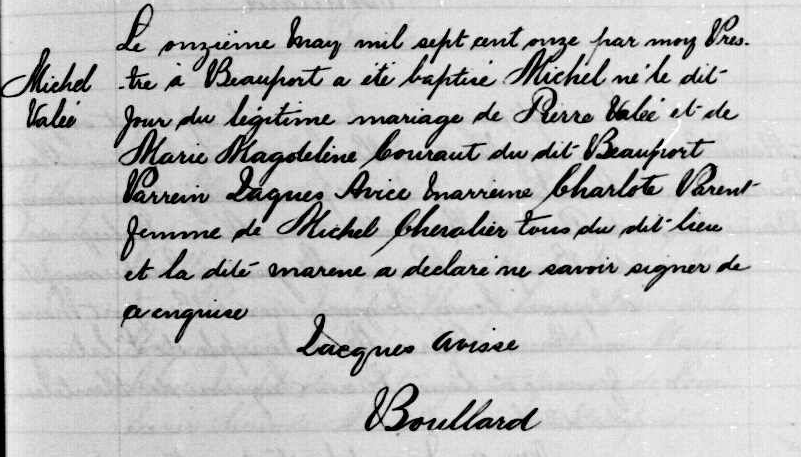 Le onzième May mil sept cent onze par moy Pres-
Michel Valéé
-tre à Beauport a été baptisé Michel né le dit
Jour du légitime mariage de Pierre Valéé et de
Marie Magdeleine Couraut du dit Beauport
Parrein Jaques Avice marreine Charlote Parent
femme de Michel Chevalier tous du dit lieu
et la dite marene a declaré ne savoir signer de
ce enquise
Jacques Avisse
Boullard